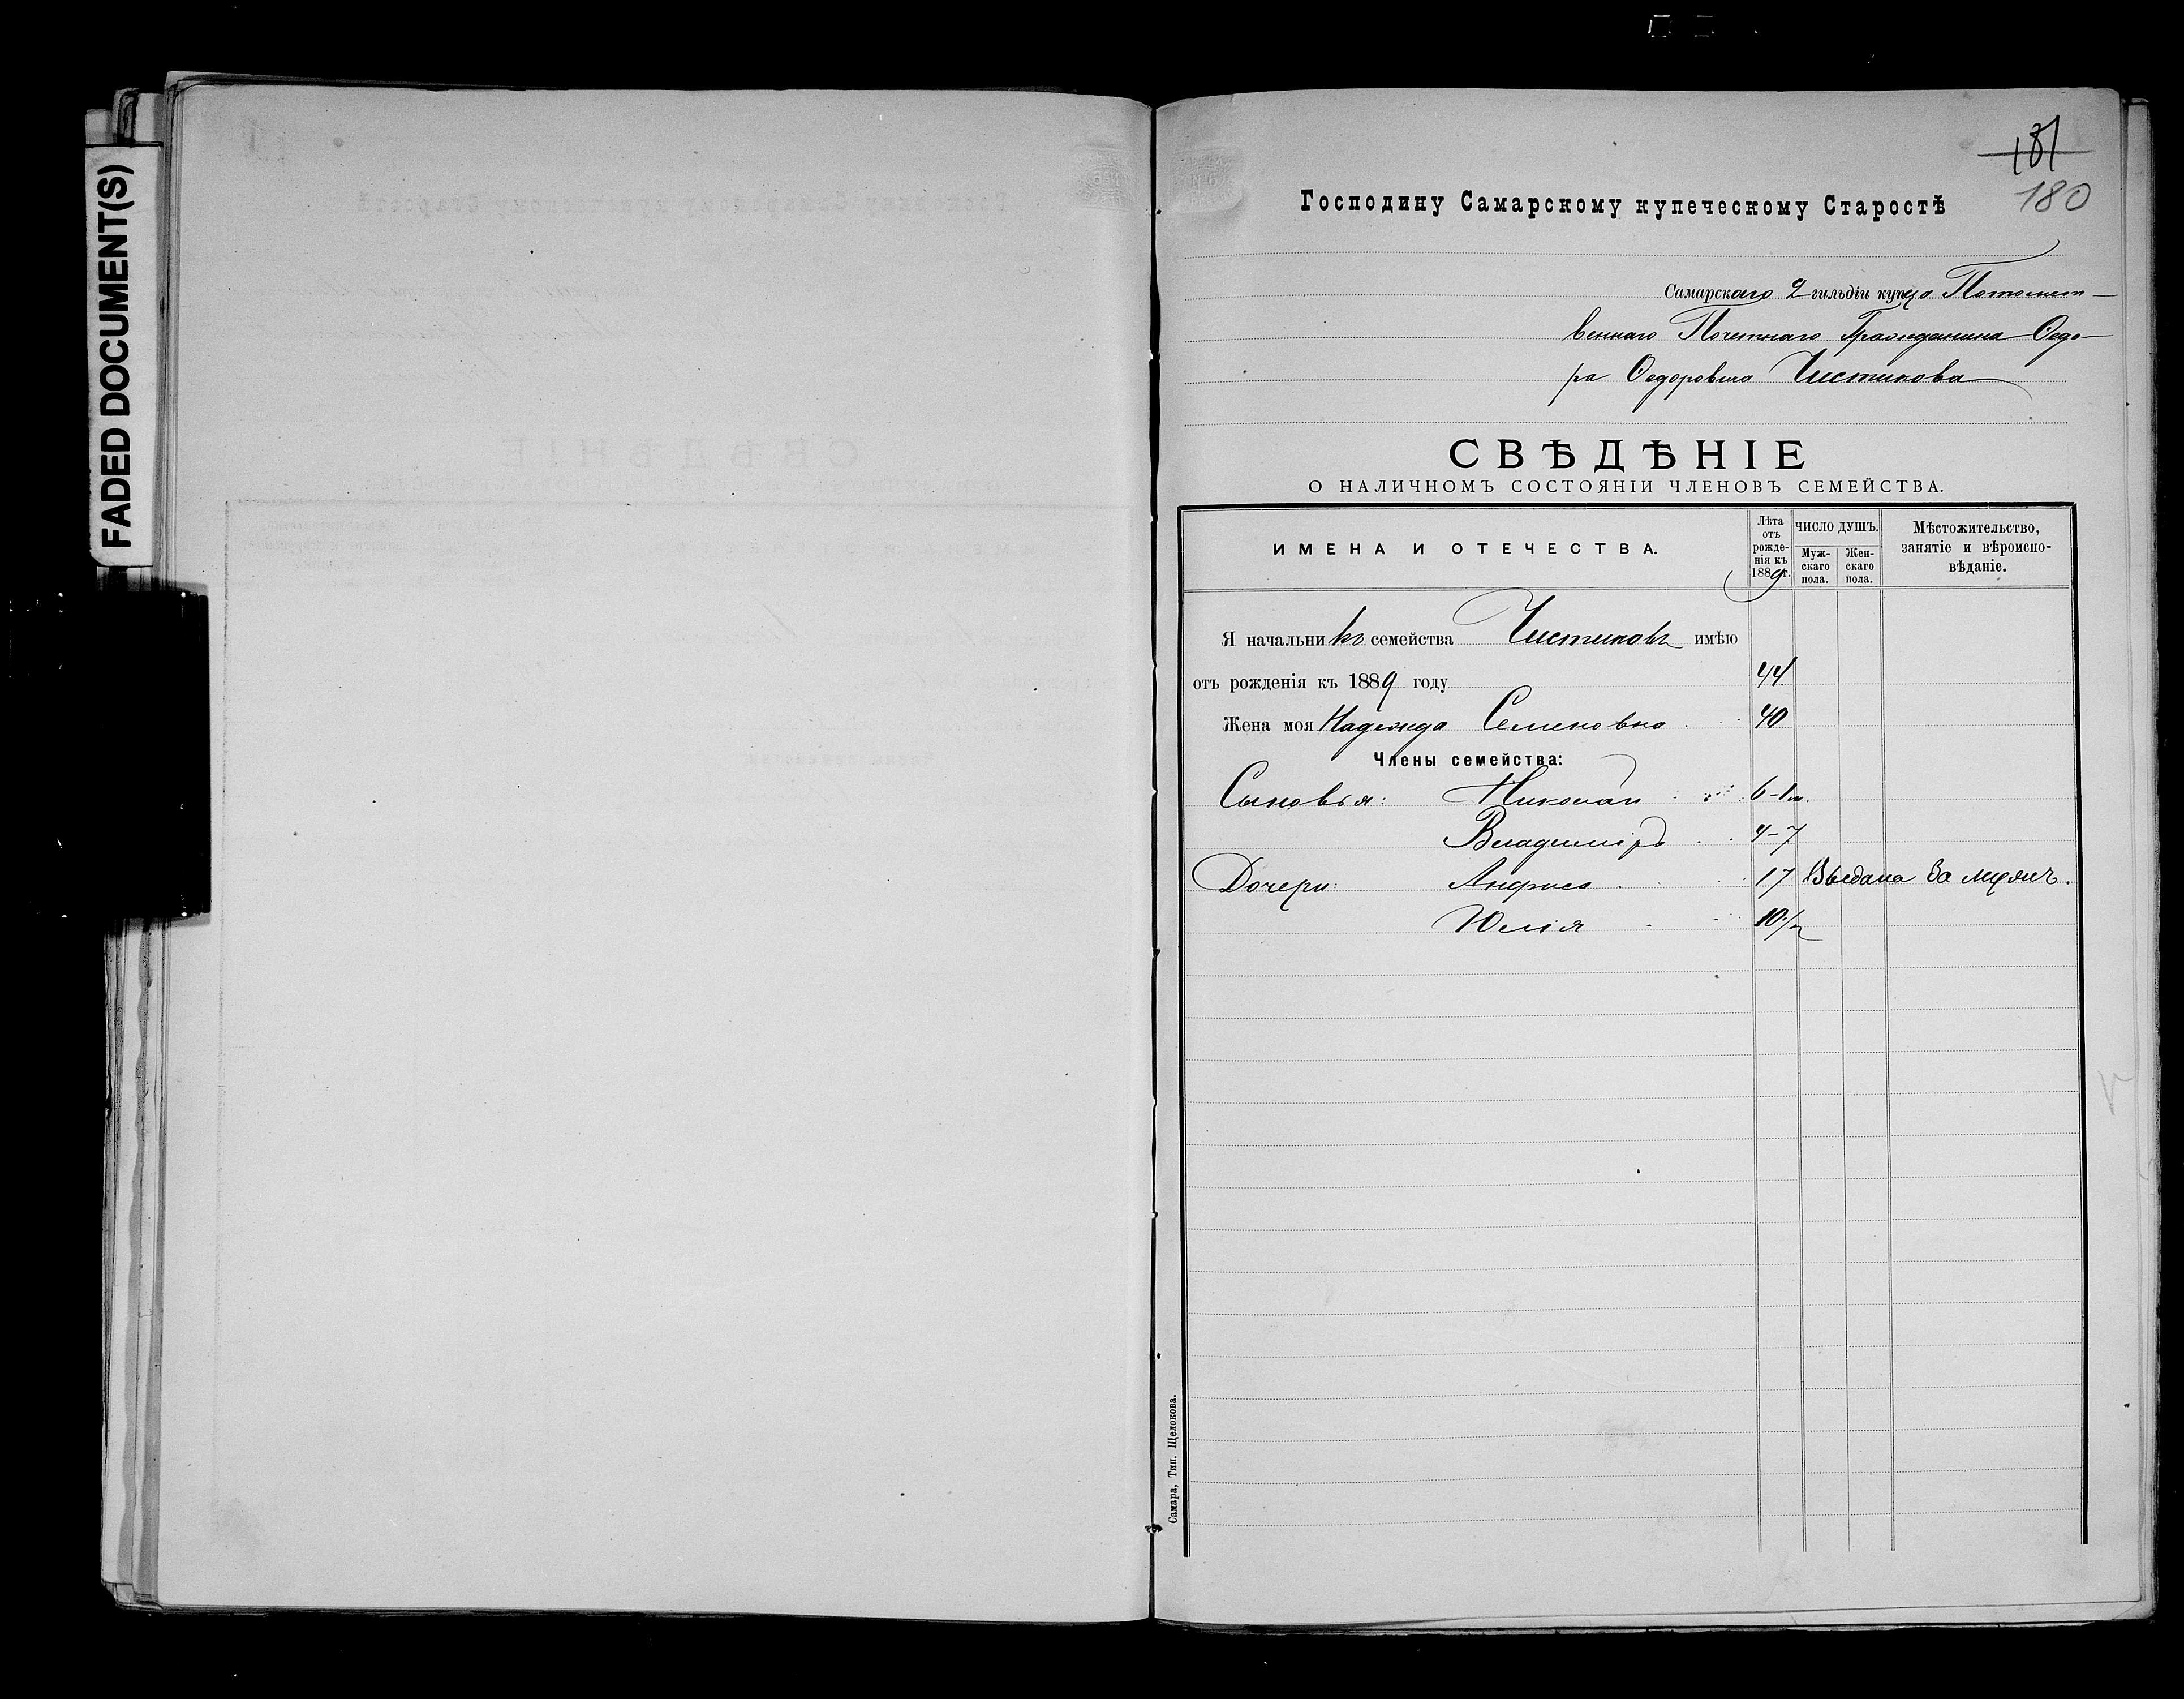 FADED DOCUMENT(S)
131
180
Господину Самарскому купеческому Старостѣ
Самарскаго 2 гильдіи купца Потомст-
веннаго Почетнаго Гражданина Ѳедо-
ра Ѳедоровича Чистикова
СВѢДѢНІЕ
О НАЛИЧНОМЪ СОСТОЯНІИ ЧЛЕНОВЪ СЕМЕЙСТВА.
ИМЕНА И ОТЕЧЕСТВА.
Лѣта отъ рожде-нія къ 1889 г.
ЧИСЛО ДУШЪ.
Муж-скаго пола.
Жен-скаго пола.
Мѣстожительство, занятіе и вѣроиспо-вѣданіе.
Я начальникъ семейства Чистиковъ имѣю
отъ рожденія къ 1889 году 44
Жена моя Надежда Семеновна 40
Члены семейства:
Сыновья: Николай 6-1 м.
Владиміръ 4-7
Дочери: Анфиса 17 Выдана за мужъ.
Юлія 10 1/2
Самара, Тип. Щелокова.